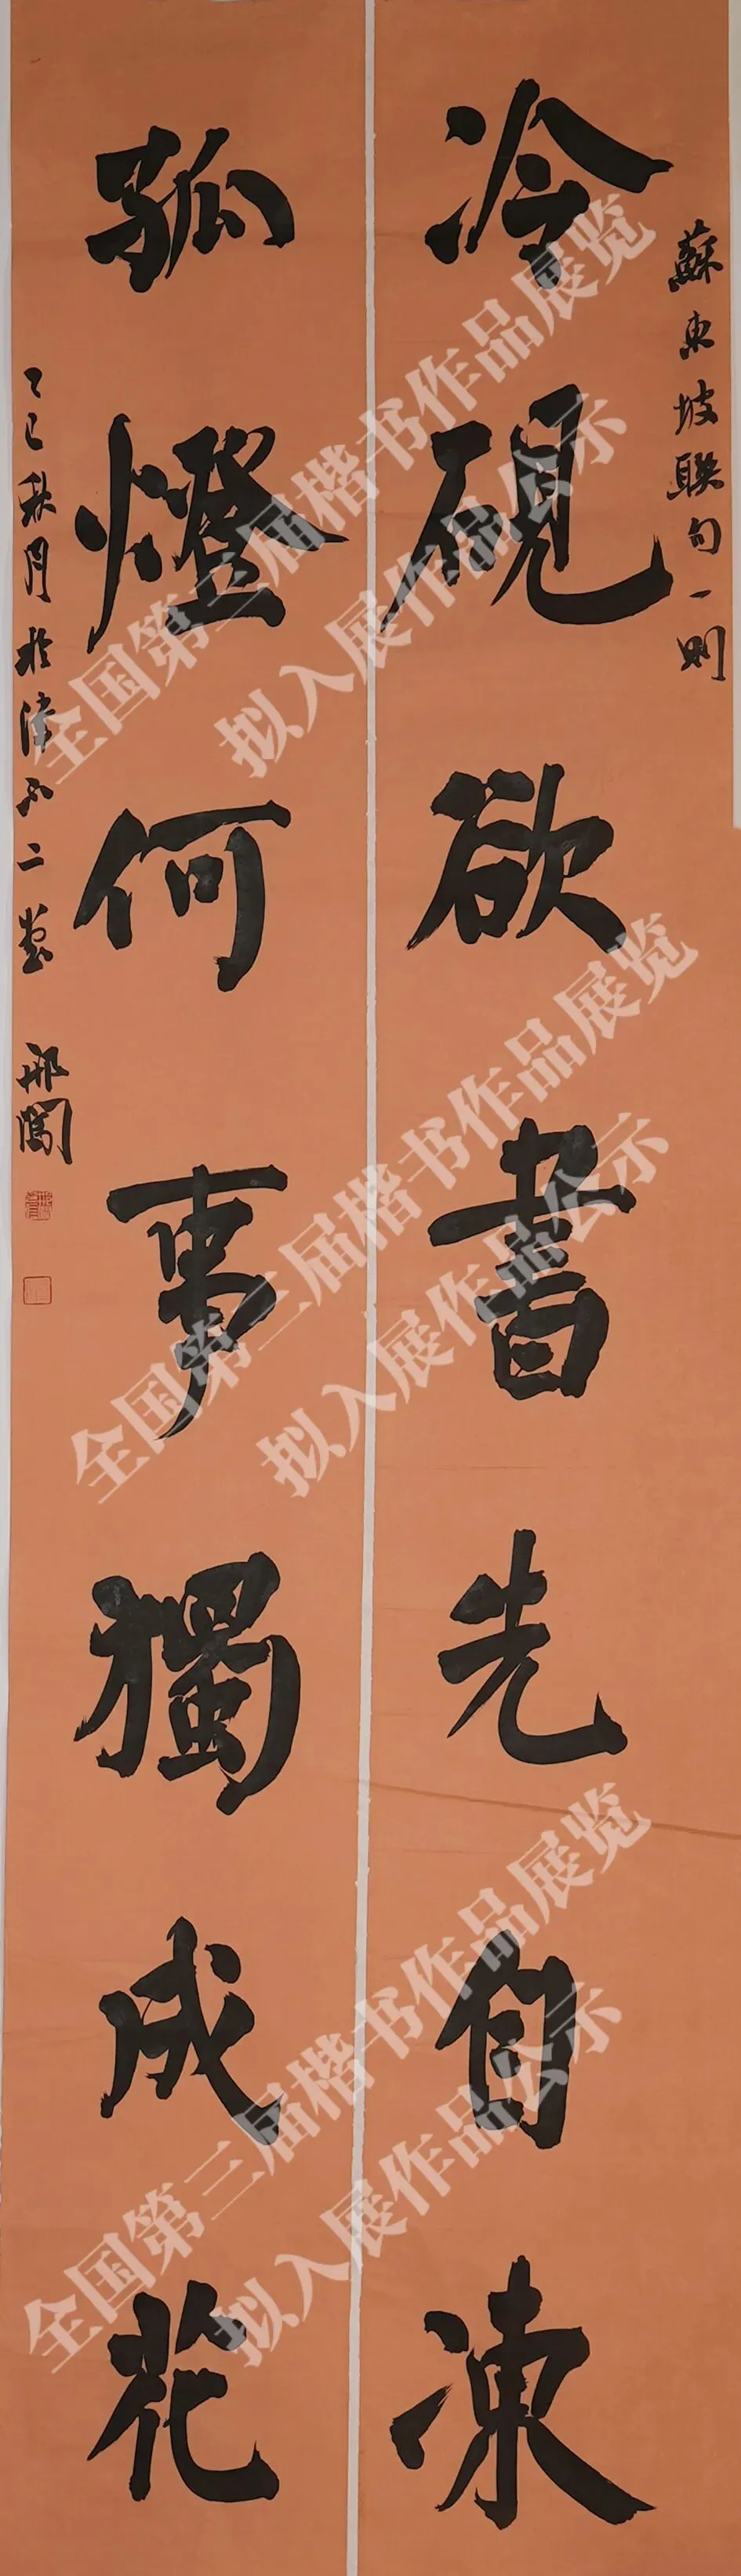 蘇東坡聯句一則
冷硯欲書先自凍
孤燈何事獨成花
乙巳秋月於津不二堂
邢闖
全国第三届楷书作品展览
拟入展作品公示
全国第三届楷书作品展览
拟入展作品公示
全国第三届楷书作品展览
拟入展作品公示